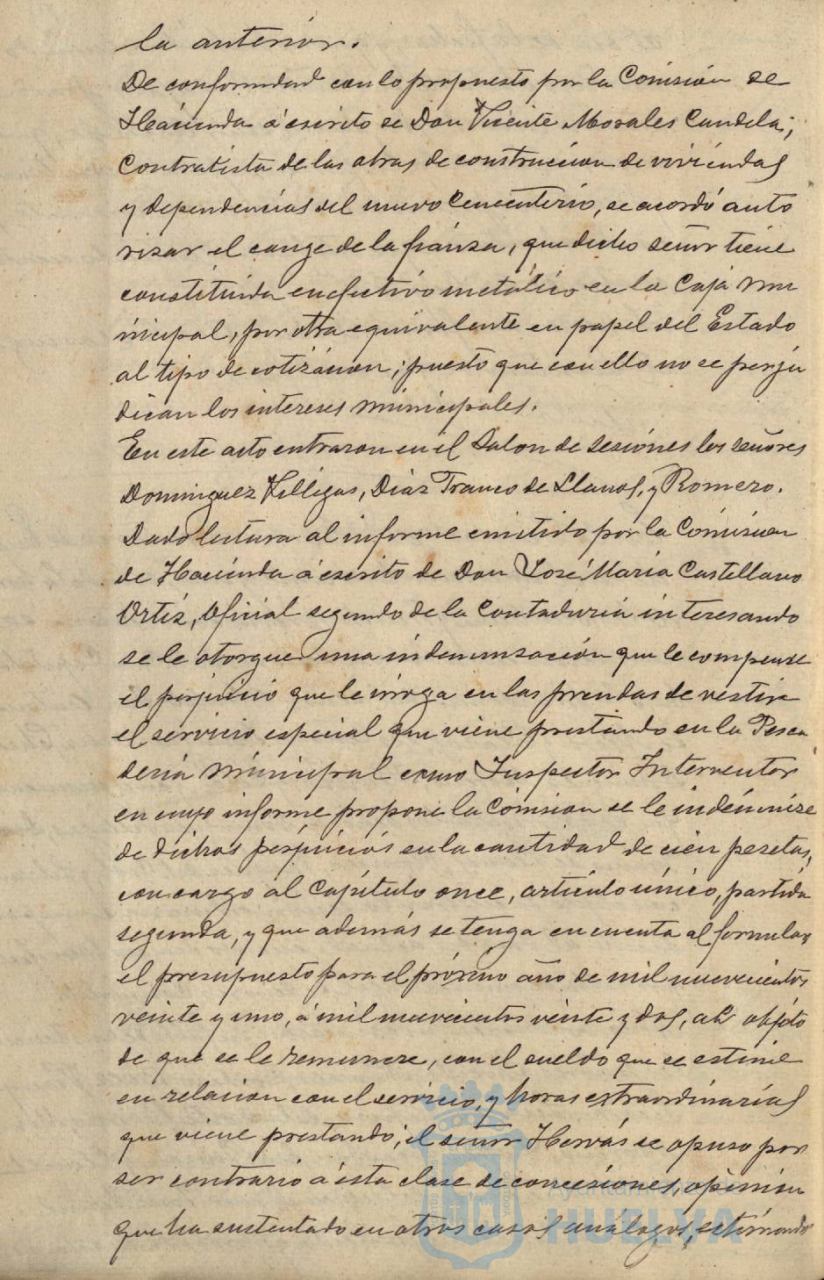 la anterior.
De conformidad con lo propuesto por la Comisión de
Hacienda á escrito de Don Vicente Morales Candela,
contratista de las obras de construccion de viviendas
y dependencias del nuevo Cementerio, se acordó auto
rizar el cange de la fianza, que dicho señor tiene
constituida en efectivo metálico en la Caja mu
nicipal, por otra equivalente en papel del Estado
al tipo de cotizacion; puesto que con ello no se perju
dican los intereses municipales.
En este acto entraron en el Salon de sesiones los señores
Dominguez Villegas, Diaz Franco de Llanos, y Romero.
Dado lectura al informe emitido por la Comision
de Hacienda á escrito de Don José María Castellano
Ortiz, Oficial segundo de la Contaduria interesando
se le otorgue una indemnización que le compense
el perjuicio que le irroga en las prendas de vestir
el servicio especial que viene prestando en la Pesca
deria Municipal como Inspector Interventor
en cuyo informe propone la Comision se le indemnice
de dichos perjuicios en la cantidad de cien pesetas,
con cargo al Capítulo once, artículo único, partida
segunda, y que además se tenga en cuenta al formular
el presupuesto para el próximo año de mil novecientos
veinte y uno, á mil novecientos veinte y dos, al objeto
de que se le remunere, con el sueldo que se estime
en relacion con el servicio, y horas extraordinarias
que viene prestando; el señor Hervás se opuso por
ser contrario á esta clase de concesiones, opinion
que ha sustentado en otros casos análogos, estimando
Ayuntamiento de
HUELVA